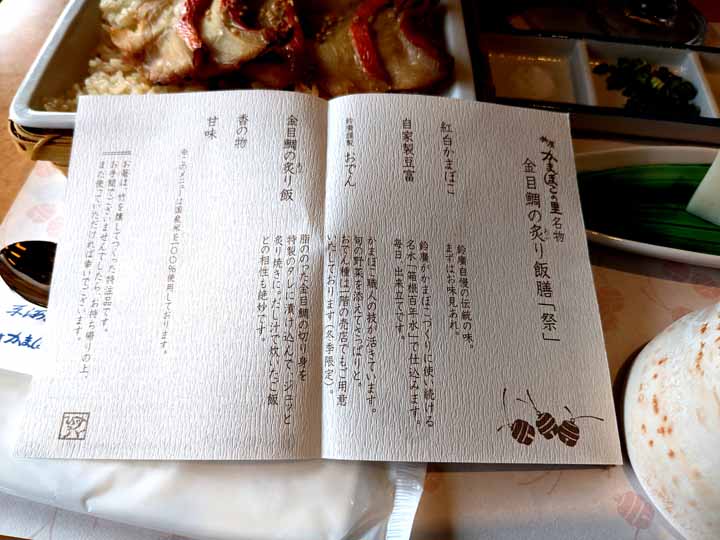 鈴廣かまぼこの里名物
金目鯛の炙り飯膳「祭」
紅白かまぼこ
鈴廣自慢の伝統の味。
まずはお味見あれ。
自家製豆富
鈴廣がかまぼこづくりに使い続ける
名水「箱根百年水」で仕込みます。
毎日、出来立てです。
鈴廣謹製 おでん
かまぼこ職人の技が活きています。
旬の野菜を添えてさっぱりと。
おでん種は一階の売店でもご用意
いたしております(冬季限定)。
金目鯛の炙り飯
脂ののった金目鯛の切り身を
特製のタレに漬け込んで、ジュッと
炙り焼きに。だし汁で炊いたご飯
との相性も絶妙です。
香の物
甘味
※このメニューは国産米を100%使用しております。
お箸は、竹を燻してつくった特注品です。
お手間でございませんでしたら、お持ち帰りの上、
また使っていただければ幸いでございます。